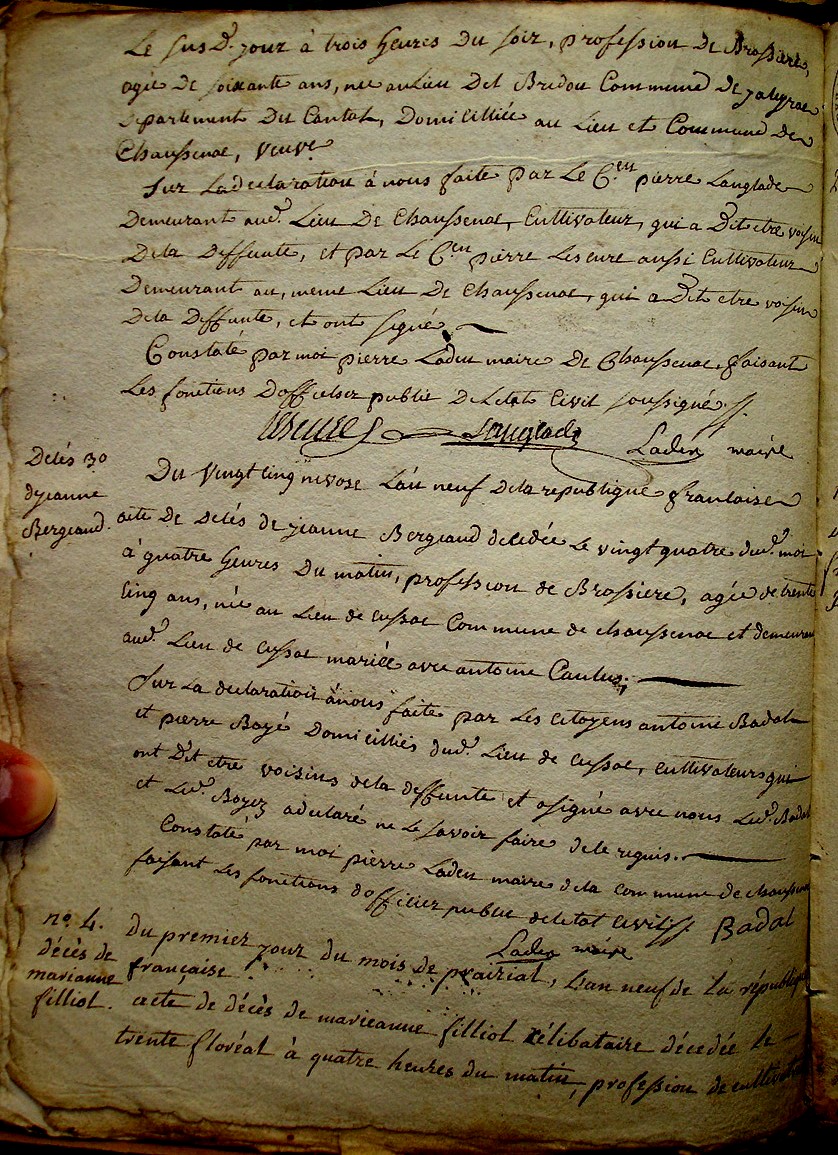 Le susd. jour à trois heures du soir, profession de Brassiere,
agée de soixante ans, née au Lieu del Bridou Commune de jaleyrac
département du Cantal, Domicilliée au Lieu et Commune de
Chaussenac, veuve
Sur La declaration à nous faite par Le C.en pierre Langlade
Demeurant aud. Lieu De Chaussenac, Cultivateur, qui a Dit etre voisin
De la Deffunte, et par Le C.en pierre Lescure aussi Cultivateur
Demeurant au, meme Lieu De Chaussenac, qui a Dit etre voisin
De la Deffunte, et ont signé
Constaté par moi pierre Laden maire De Chaussenac, faisant
Les fonctions D'officier public De L'etat Civil soussigné
Lescure Langlade Laden maire
Décès 3º
de jeanne
Bergeaud.
Du vingt cinq nivose L'an neuf de la republique francaise
acte de décés de jeanne Bergeaud decedée Le vingt quatre dud. moi
à quatre heures Du matin, profession de Brassiere, agée de trente
cinq ans, née au Lieu de Cussac Commune de chaussenac et demeurant
aud. Lieu de Cussac mariée avec antoine
Sur La declaration à nous faite par Les citoyens antoine Badal
et pierre Boyé Domicilliés dud. Lieu de Cussac, cultivateurs qui
ont Dit etre voisins de la deffunte et a signé avec nous Led. Badal
et Led. Boyez a declaré ne Le savoir faire de le requis.
Constaté par moi pierre Laden maire de la commune de chaussenac
faisant Les fonctions d'officier public de l'etat civil Badal
Laden maire
nº 4.
décès de
marianne
filliol.
du premier jour du mois de prairial, L'an neuf de la république
française
acte de décès de marieanne filliol célibataire décedée le
trente floréal à quatre heures du matin, profession de